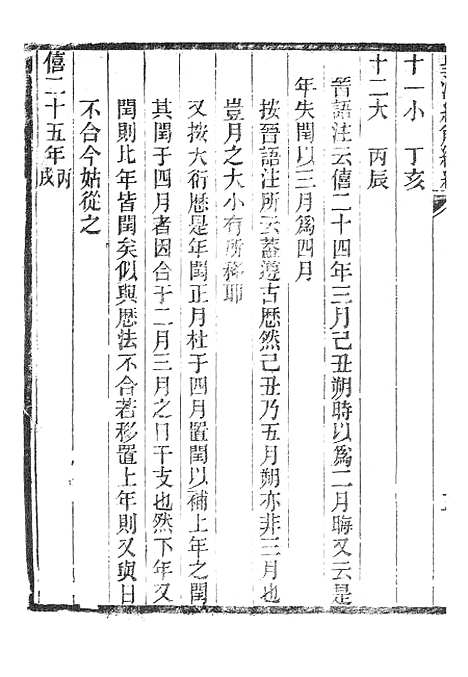 十一小　丁亥
十二大　丙辰
晉語注云僖二十四年三月己丑朔時以爲二月晦又云是
年失閏以三月爲四月
按晉語注所云蓋遵古歷然己丑乃五月朔亦非三月也
豈月之大小有所移耶
又按大衍歷是年閏正月杜于四月置閏以補上年之閏
其閏于四月者因合于二月三月之日干支也然下年又
閏則比年皆閏矣似與歷法不合若移置上年則又與日
不合今姑從之
僖二十五年丙戌